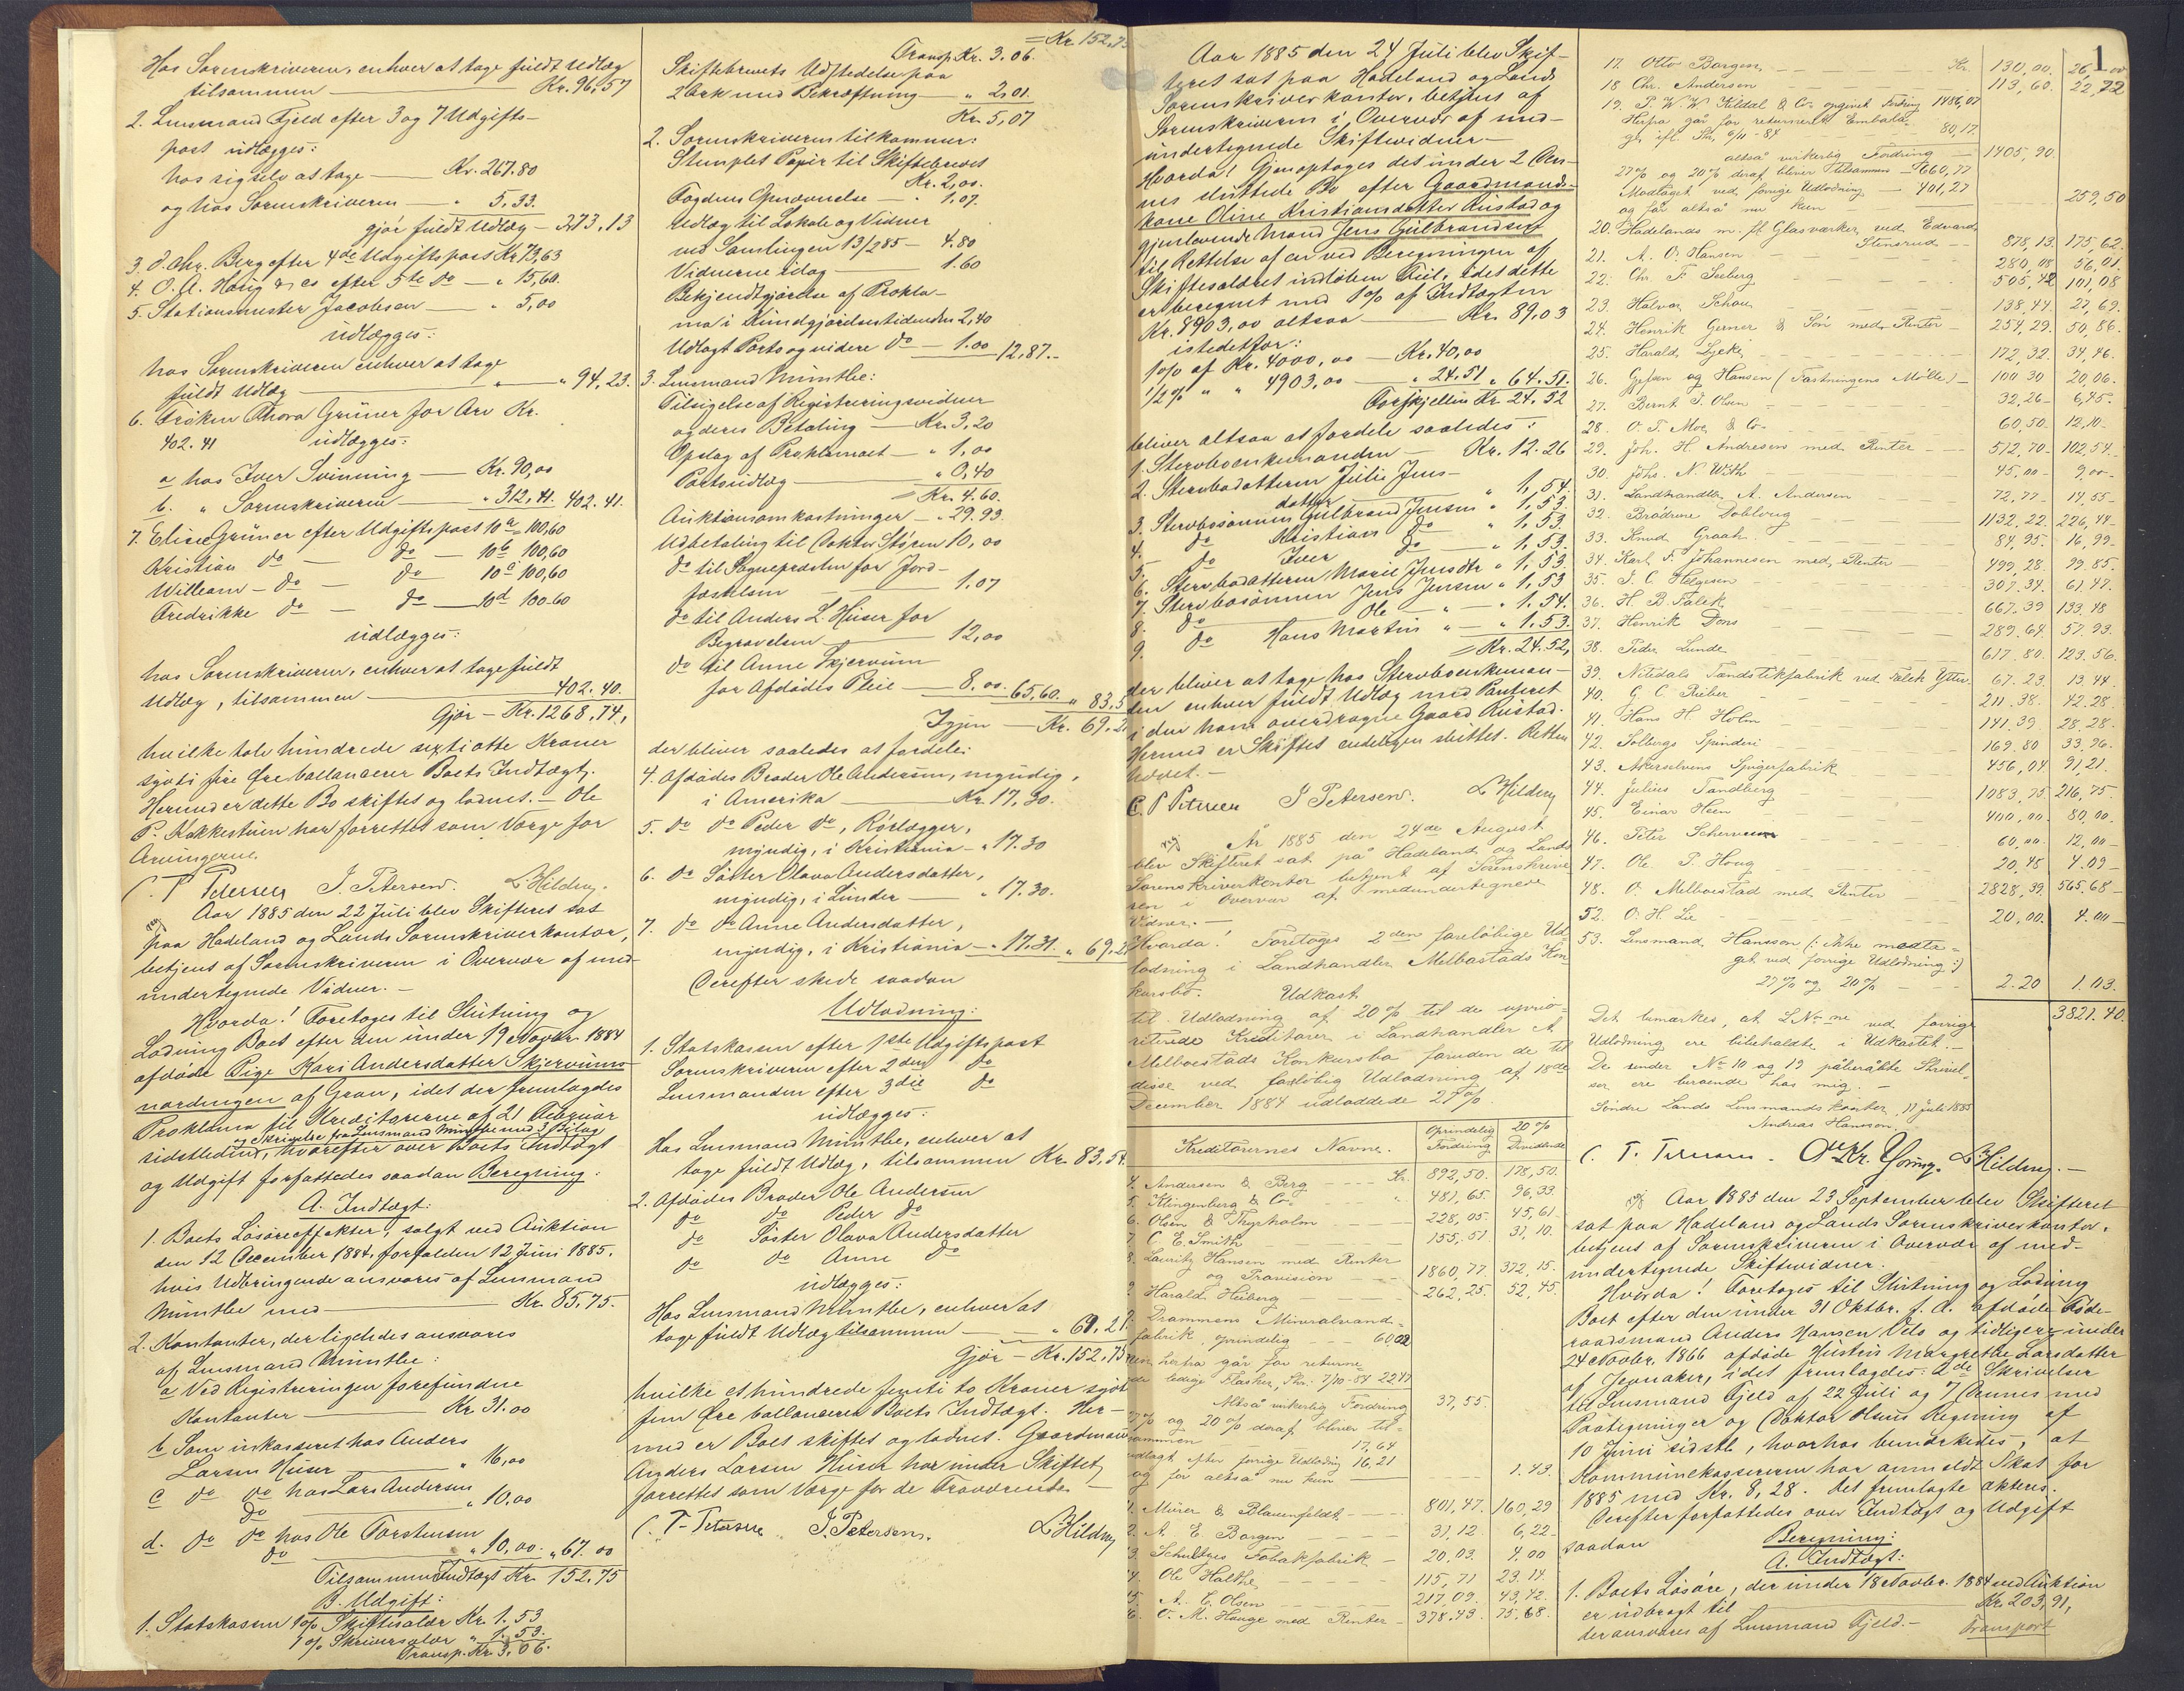 Hos Sorenskriveren, enhver at tage fuldt Udlæg
tilsammen — Kr. 96,57
2. Lensmand Fjeld efter 3 og 7 Udgifts-
post udlægges:
hos sig selv at tage — Kr. 267.80
og hos Sorenskriveren — " 5,33.
gjør fuldt Udlæg — 273,13
3. O. Chr. Berg efter 4de Udgiftspost Kr 73,63
4. O. A. Høvig & Co efter 5te do — " 15,60.
5. Stationsmester Jacobsen — " 5,00
udlægges:
hos Sorenskriveren enhver at tage
fuldt Udlæg — " 94,23.
6. Frøken Thora Grüner for Arv Kr.
402.41 udlægges:
a hos Iver Svinning — Kr. 90,00
b. " Sorenskriveren — " 312,41. 402.41.
7. Elise Grüner efter Udgiftspost 10a = 100,60
Kristian do — do — 10b 100,60
Willeam — do — do 10c 100,60
Fredrikke do — do — 10d 100.60
udlægges:
hos Sorenskriveren, enhver at tage fuldt
Udlæg, tilsammen — 402.40.
Gjør — Kr. 1268,74,
hvilke tolv hundrede sexti otte Kroner
syvti fire Øre ballancerer Boets Indtægt.
Hermed er dette Bo skiftet og loddet. — Ole
P. Kokkestuen har forrettet som Værge for
Arvingerne.
C. P Petersen J. Petersen. L Hildeng.
Aar 1885 den 22 Juli blev Skifteret sat
paa Hadeland og Lands Sorenskriverkontor,
betjent af Sorenskriveren i Overvær af med-
undertegnede Vidner. —
Hvorda! Foretoges til Slutning og
Lodning Boet efter den under 19 Novbr. 1884
afdøde Pige Kari Andersdatter Skjervums-
nordengen af Gran, idet der fremlagdes
Proklama til Kreditorerne af 21 Februar
og Skrivelse fra Lensmand Münthe med 3 Bilag
sidstleden, hvorefter over Boets Indtægt
og Udgift forfattedes saadan Beregning:
A. Indtægt:
1. Boets Løsøreeffekter, solgt ved Auktion
den 12 December 1884, forfalden 12 Juni 1885.
hvis Udbringende ansvares af Lensmand
Münthe med — Kr. 85,75.
2. Kontanter, der ligeledes ansvares
af Lensmand Münthe:
a Ved Registreringen forefundne
Kontanter — Kr. 31.00
b Som inkasseret hos Anders
Larsen Huser — " 16,00
c do do hos Lars Andersen
do — " 10,00
d. do do hos Ole Torstensen
do — " 10,00. " 67.00
Tilsammen Indtægt Kr. 152.75
B. Udgift:
1. Statskassen 1% Skiftesalær Kr. 1.53
1% Skriversalær " 1.53.
Transp. Kr. 3,06.
= Kr. 152,75
Transp Kr. 3.06.
Skiftebrevets Udstedelse paa
2 Ark med Bekræftning — " 2,01.
Kr. 5,07
2. Sorenskriveren tilkommer:
Stemplet Papir til Skiftebrevet
Kr. 2,00.
Fogdens Opnævnelse — " 1,07.
Udlæg til Lokale og Vidner
ved Samlingen 13/2 85 — 4.80
Vidnerne idag — 1.60
Bekjendtgjørelse af Prokla-
ma i Kundgjørelsestidenden 2,40
Udlagt Porto og videre do — 1.00 12,87.-
3. Lensmand Münthe:
Tilsigelse af Registreringsvidner
og deres Betaling — Kr. 3,20
Opslag af Proklamaet — " 1,00
Portoudlæg — " 0,40
= Kr. 4.60.
Auktionsomkostninger — " 29.93.
Udbetaling til Doktor Støren 10,00
do til Sognepresten for Jord-
fæstelsen — 1,07
do til Anders L. Huser for
Begravelsen — 12,00
do til Anne Skjervum
for Afdødes Pleie — 8.00. 65,60. " 83,5
Igjen — Kr. 69,2
der bliver saaledes at fordele:
4. Afdødes Broder Ole Andersen, myndig,
i Amerika — Kr. 17,30.
5. do do Peder do, Rørlægger,
myndig, i Kristiania — " 17.30
6. do Søster Olava Andersdatter,
myndig, i Lunder — " 17.30.
7. do do Anne Andersdatter,
myndig, i Kristiania — " 17.31. " 69,2
Derefter skede saadan
Udlodning:
1. Statskassen efter 1ste Udgiftspost
Sorenskriveren efter 2den do
Lensmanden efter 3die do
udlægges:
Hos Lensmand Münthe, enhver at
tage fuldt Udlæg, tilsammen Kr. 83,54
2. Afdødes Broder Ole Andersen
do do Peder do
do Søster Olava Andersdatter
do do Anne do
udlægges:
Hos Lensmand Münthe, enhver at
tage fuldt Udlæg tilsammen — " 69,21
Gjør — Kr. 152,75
hvilke et hundrede femti to Kroner syvti
fem Øre ballancerer Boets Indtægt. Her-
med er Boet skiftet og loddet. Gaardmand
Anders Larsen Huser har under Skiftet
forrettet som Værge for de Fraværende. —
C. P. Petersen J. Petersen. L Hildeng
Aar 1885 den 24 Juli blev Skif-
teret sat paa Hadeland og Lands
Sorenskriverkontor, betjent af
Sorenskriveren i Overvær af med-
undertegnede Skiftevidner —
Hvorda! Gjenoptoges det under 2 Den-
nes sluttede Bo efter Gaardmands-
kone Oline Kristiansdatter Rustad og
gjenlevende Mand Jens Gulbrandsen
til Rettelse af en ved Beregningen af
Skiftesalæret indløben Feil, idet dette
er beregnet med 1% af Indtægten
Kr. 8903,00 altsaa — Kr. 89.03
istedetfor:
1% af Kr. 4000,00 — Kr. 40,00
1/2% " " 4903,00 — " 24.51 " 64.51.
Forskjellen Kr. 24.52
bliver altsaa at fordele saaledes:
1. Stervboenkemanden — Kr. 12.26
2. Stervbodatteren Julie Jens-
datter " 1,54.
3. Stervbosønnen Gulbrand Jensen " 1,53.
4. do Kristian do " 1,53.
5. do Iver do " 1,53.
6. Stervbodatteren Marie Jensdtr " 1,53.
7. Stervbosønnen Jens Jensen " 1,53
8. do Ole " — " 1,54.
9. do Hans Martin " — " 1.53.
= Kr. 24.52,
der bliver at tage hos Stervboenkeman-
den enhver fuldt Udlæg med Panteret
i den ham overdragne Gaard Rustad.
Hermed er Skiftet endeligen sluttet. Retten
hævet. —
C. P Petersen J Petersen. L Hildeng
År 1885 den 24de August
blev Skifteret sat på Hadeland og Lands
Sorenskriverkontor betjent af Sorenskrive
ren i Overvær af medundertegnede
Vidner. —
Hvorda! Foretoges 2den foreløbige Ud
lodning i Landhandler Melbostads Kon
kursbo. Udkast
til Udlodning af 20% til de uprio-
riterede Kreditorer i Landhandler A
Melbostads Konkursbo foruden de til
disse ved foreløbig Udlodning af 18de
December 1884 udloddede 27%.
Kreditorernes Navne. Oprindelig Fordring 20% Dividende
4. Andersen & Berg — Kr. 892,50. 178,50.
5. Klingenberg & Co " 481,65. 96,33.
6. Olsen & Thepholm — 228,05. 45,61
7. C. E. Smith 155,51 31,10.
8. Lauritz Hansen med Renter
og Provision — 1860,77. 372,15.
9. Harald Heiberg 262,25. 52,45.
Drammens Mineralvand-
fabrik, oprindelig — 60,02
men herfra går for returne-
de ledige Flasker, Skr. 7/10-84 22,47
Altså virkerlig Fordring 37,55.
27% og 20% deraf, bliver til-
sammen 17,64
udlagt efter forrige Udlodning 16,21
og får altså nu kun — 1.43.
Mürer & Blauenfeldt — 801,47. 160,29
A. E Borgen — 31,12. 6,22
Schultzes Tobakfabrik — 20,03. 4.00
Ole Halthe 115,71 23.14.
A. C. Olsen 217,09. 43,42.
O. M. Hauge med Renter — 378.43. 75,68.
17. Otto Borgen — Kr. 130,00. 26,00
18 Chr. Andersen — 113,60. 22,72
19. P. W. W. Kildal & Co opgivet Fordring 1486,07
Herfra går for returneret Embala-
ge ifl. Skr. 6/11-84 — 80,17.
altså virkerlig Fordring — 1405,90.
27% og 20% deraf bliver tilsammen — 660,77
Modtaget ved forrige Udlodning — 401,27
og får altså nu kun — 259,50
20. Hadelands m. fl Glasværker ved Edvard
Stensrud — 878,13. 175,62.
21. A. O. Hansen 280,08 56,01.
22. Chr. F. Seeberg 505,42 101,08
23. Halvor Schou 138,44 27,69.
24. Henrik Gerner & Søn med Renter — 254,29. 50,86.
25. Harald Lycke 172,32. 34,46.
26. Gjefsen og Hansen (Fæstningens Mølle) — 100 30 20,06.
27. Bernt I. Olsen — 32,26 6,45.
28. O. T. Moe & Co — 60,50. 12,10
29. Joh. H. Andresens med Renter — 512,70 102,54
30. Johs. N. With — 45,00 9,00
31. Landhandler A. Andersen 72,77 14,55
32. Brødrene Dobloug — 1132,22. 226,44
33. Knud Graah. 84,95. 16,99
34. Karl F. Johannesen med Renter 499,28. 99,85.
35. I. C. Helgesen 307.34. 61.47.
36. H. B. Falck 667.39 133.48
37. Henrik Dons 289.64. 57.93.
38. Peder Lunde 617.80. 123.56.
39. Nitedals Tændstikfabrik ved Falck Ytter 67.23. 13.44.
40. G. C Rieber 211.38. 42.28.
41. Hans H Holm 141.39. 28.28.
42. Solbergs Spinderi 169.80 33.96.
43. Akerselvens Spigerfabrik 456,04. 91,21.
44. Julius Tandberg 1083,75 216,75
45. Einar Hem 400,00. 80,00.
46. Peter Scherven 60,00. 12,00
47. Ole P. Houg 20,45 4.09
48. O. Melbostad med Renter 2828,39. 565.68
52. O. H. Lie 20,00. 4.00
53. Lensmand Hansson (: ikke medta-
get ved forrige Udlodning :)
27% og 20% — 2.20 1.03.
3821.40.
Det bemærkes, at LNo ne ved forrige
Udlodning ere bibeholdte i Udkastet. —
De under No 10 og 19 påberåbte Skrivel-
ser ere beroende hos mig. —
Søndre Lands Lensmandskontor, 11 Juli 1885
Andreas Hansson.
C. P. Petersen. O Kr. Young. L Hildeng. —
Aar 1885 den 23 September blev Skifteret
sat paa Hadeland og Lands Sorenskriverkontor,
betjent af Sorenskriveren i Overvær af med-
undertegnede Skiftevidner.
Hvorda! Foretoges til Slutning og Lodning
Boet efter den under 31 Oktbr. f. A. afdøde Føde-
raadsmand Anders Hansen Velo og tidligere under
24 Novbr. 1866 afdøde Hustru Margrethe Larsdatter
af Jevnaker, idet fremlagdes: 2de Skrivelser
til Lensmand Fjeld af 22 Juli og 7 Dennes med
Paategninger og Doktor Huus Regning af
10 Juni sidstl, hvorhos bemærkedes, at
Kommunekassereren har anmeldt Skat for
1885 med Kr. 8,28. Det fremlagte akteres.
Derefter forfattedes over Indtægt og Udgift
saadan Beregning:
A. Indtægt:
1. Boets Løsøre, der under 18 Novbr. 1884 ved Auktion
er udbragt til — Kr. 203,91,
der ansvares af Lensmand Fjeld. — Transport
1